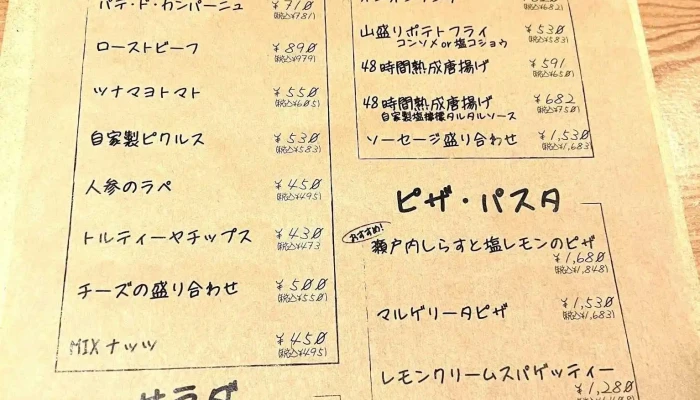 パテ・ド・カンパーニュ ¥710
(税込¥781)
ローストビーフ ¥890
(税込¥979)
ツナマヨトマト ¥550
(税込¥605)
自家製ピクルス ¥530
(税込¥583)
人参のラペ ¥450
(税込¥495)
トルティーヤチップス ¥430
(税込¥473
チーズの盛り合わせ ¥500
(税込¥550)
MIXナッツ ¥450
(税込¥495)
サラダ
(税込¥682)
山盛りポテトフライ ¥530
コンソメor塩コショウ (税込¥583)
48時間熟成唐揚げ ¥591
(税込¥650)
48時間熟成唐揚げ ¥682
自家製塩檸檬タルタルソース (税込¥750)
ソーセージ盛り合わせ ¥1,530
(税込¥1,683)
ピザ・パスタ
おすすめ!
瀬戸内しらすと塩レモンのピザ
¥1,680
(税込¥1,848)
マルゲリータピザ ¥1,530
(税込¥1,683)
レモンクリームスパゲッティー
¥1,280